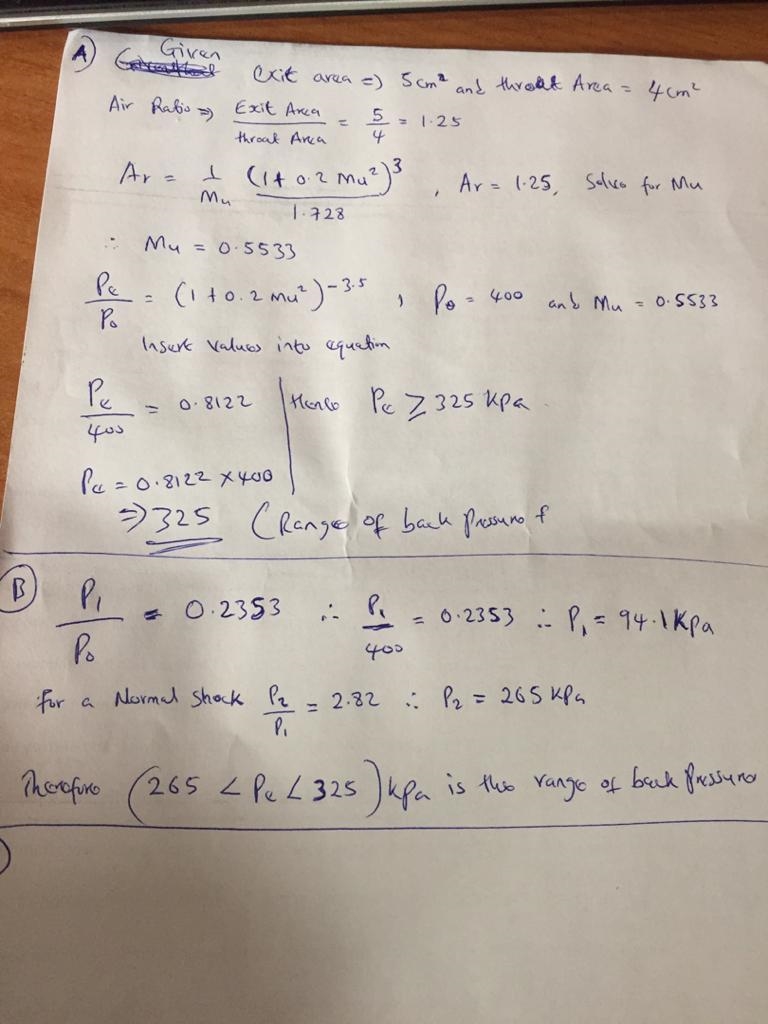 A) Given
Exit area => 5cm² and throat Area = 4cm²
Air Ratio => Exit Area / throat Area = 5/4 = 1.25
Ar = 1/Mu (1+0.2Mu²)³/1.728 , Ar = 1.25, Solve for Mu
∴ Mu = 0.5533
Pe/Po = (1+0.2Mu²)^-3.5 , Po = 400 and Mu = 0.5533
Insert values into equation
Pe/400 = 0.8122 | Hence Pe ≥ 325 kpa
Pe = 0.8122 × 400
=> 325 (Range of back Pressure
B) P1/Po = 0.2353 ∴ P1/400 = 0.2353 ∴ P1 = 94.1 Kpa
for a Normal Shock P2/P1 = 2.82 ∴ P2 = 265 KPa
Therefore (265 < Pe < 325) kpa is the range of back Pressure